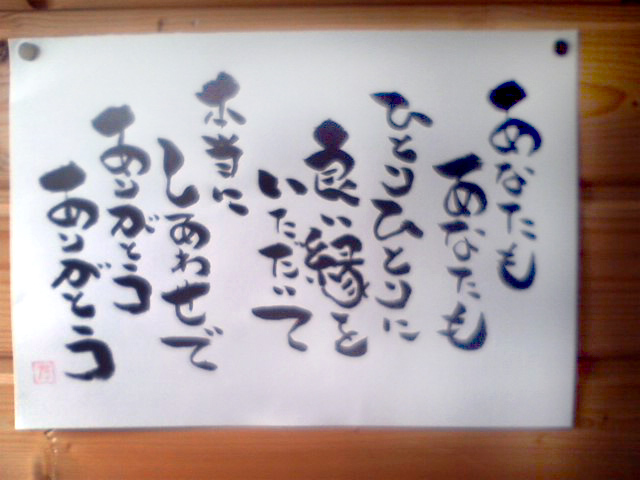 あなたも
あなたも
ひとりひとりに
良い縁を
いただいて
本当に
しあわせで
ありがとう
ありがとう